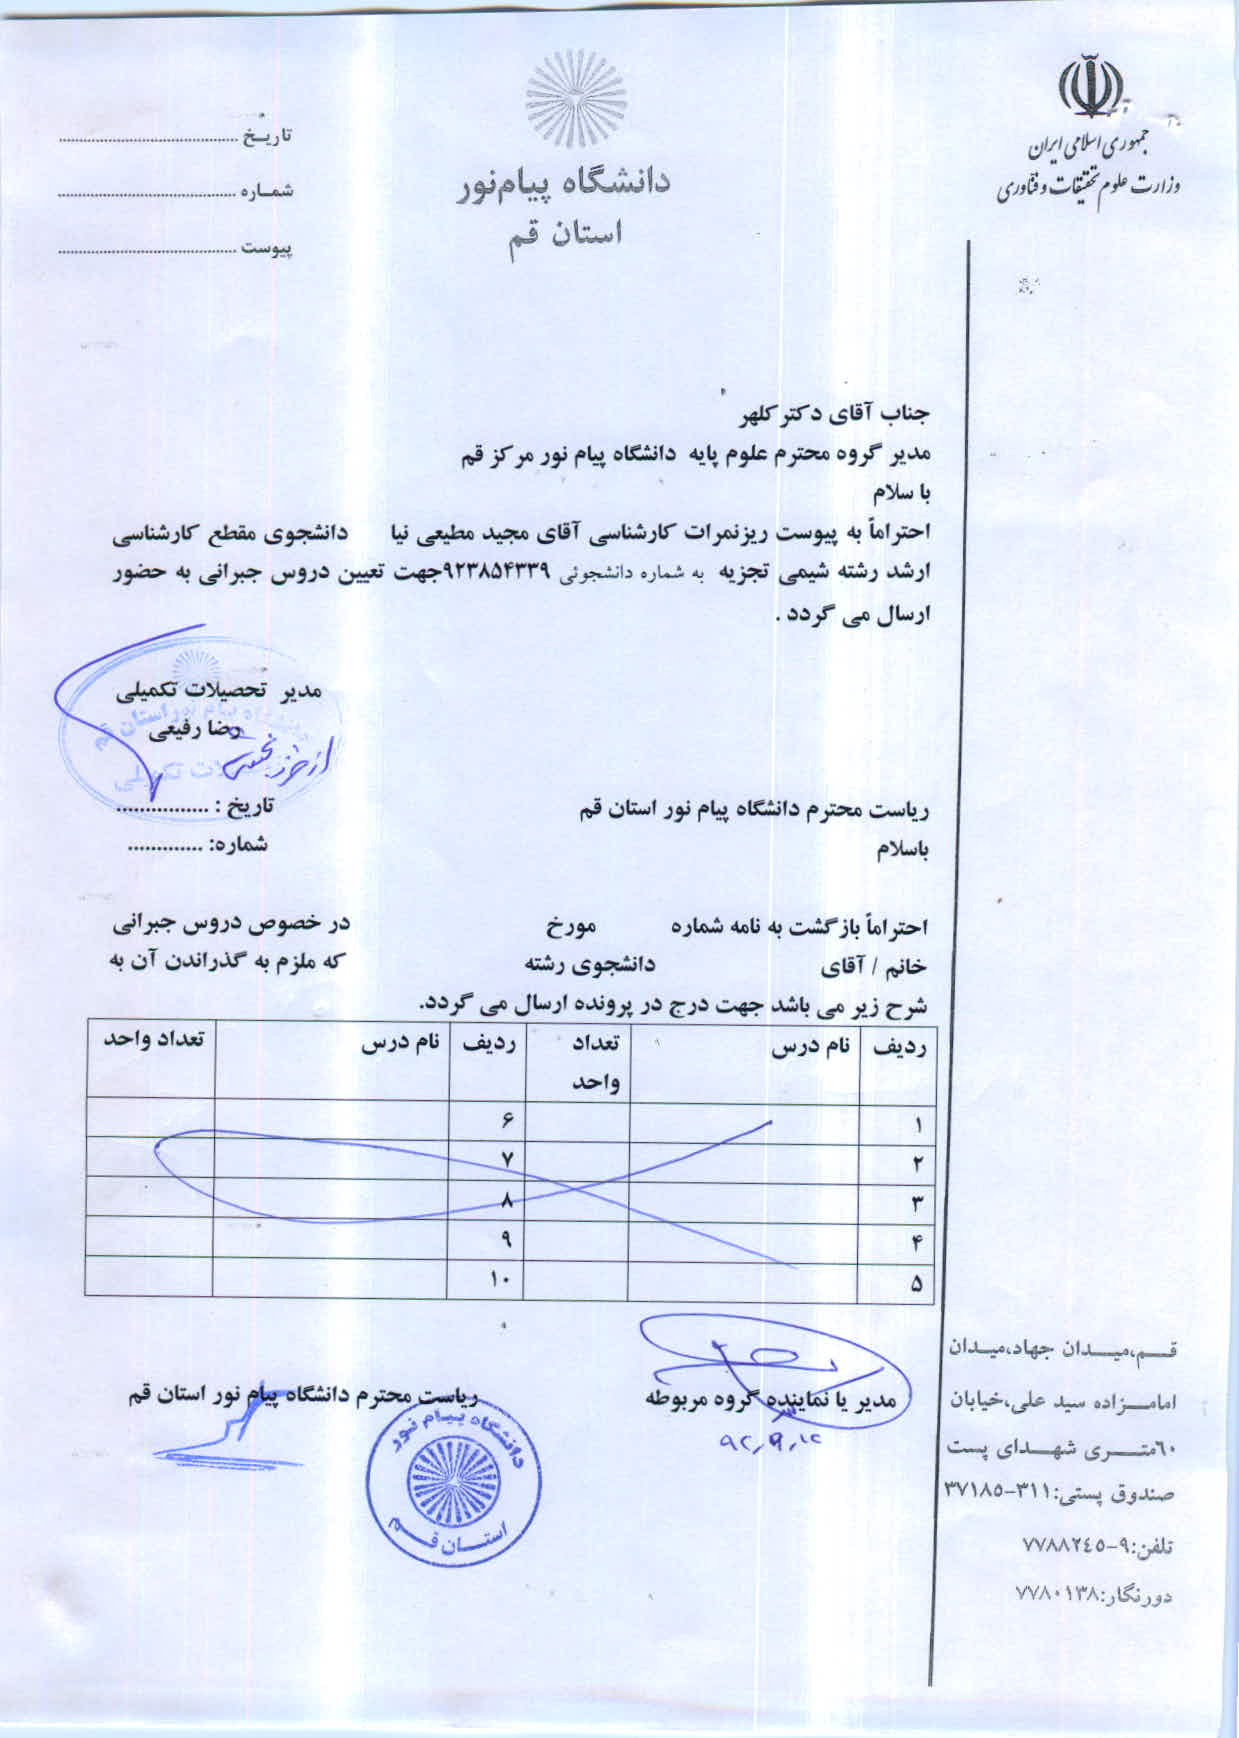 جمهوری اسلامی ایران
وزارت علوم تحقیقات و فنّاوری
دانشگاه پیام‌نور
استان قم
تاریـخ ..........................................
شمـاره ..........................................
پیوست ..........................................
جناب آقای دکتر کلهر
مدیر گروه محترم علوم پایه دانشگاه پیام نور مرکز قم
با سلام
احتراماً به پیوست ریزنمرات کارشناسی آقای مجید مطیعی نیا دانشجوی مقطع کارشناسی
ارشد رشته شیمی تجزیه به شماره دانشجوئی ۹۲۳۸۵۴۳۳۹جهت تعیین دروس جبرانی به حضور
ارسال می گردد .
مدیر تحصیلات تکمیلی
رضا رفیعی
از طرف
دانشگاه پیام نور استان قم
تحصیلات تکمیلی
ریاست محترم دانشگاه پیام نور استان قم
تاریخ : ................
باسلام
شماره: .............
احتراماً بازگشت به نامه شماره مورخ در خصوص دروس جبرانی
خانم / آقای دانشجوی رشته که ملزم به گذراندن آن به
شرح زیر می باشد جهت درج در پرونده ارسال می گردد.
ردیف نام درس تعداد واحد ردیف نام درس تعداد واحد
۱ ۶
۲ ۷
۳ ۸
۴ ۹
۵ ۱۰
مدیر یا نماینده گروه مربوطه
۹۲,۹,۱۲
ریاست محترم دانشگاه پیام نور استان قم
دانشگاه پیـام نور
استـان قـم
قـــم،میـــدان جهاد،میـدان
امامـــزاده سید علی،خیابان
٦٠متـــری شهـــدای پست
صندوق پستی:۳۱۱-۳۷۱۸۵
تلفن:۹-۷۷۸۸۲٤٥
دورنگار:۷۷۸۰۱۳۸